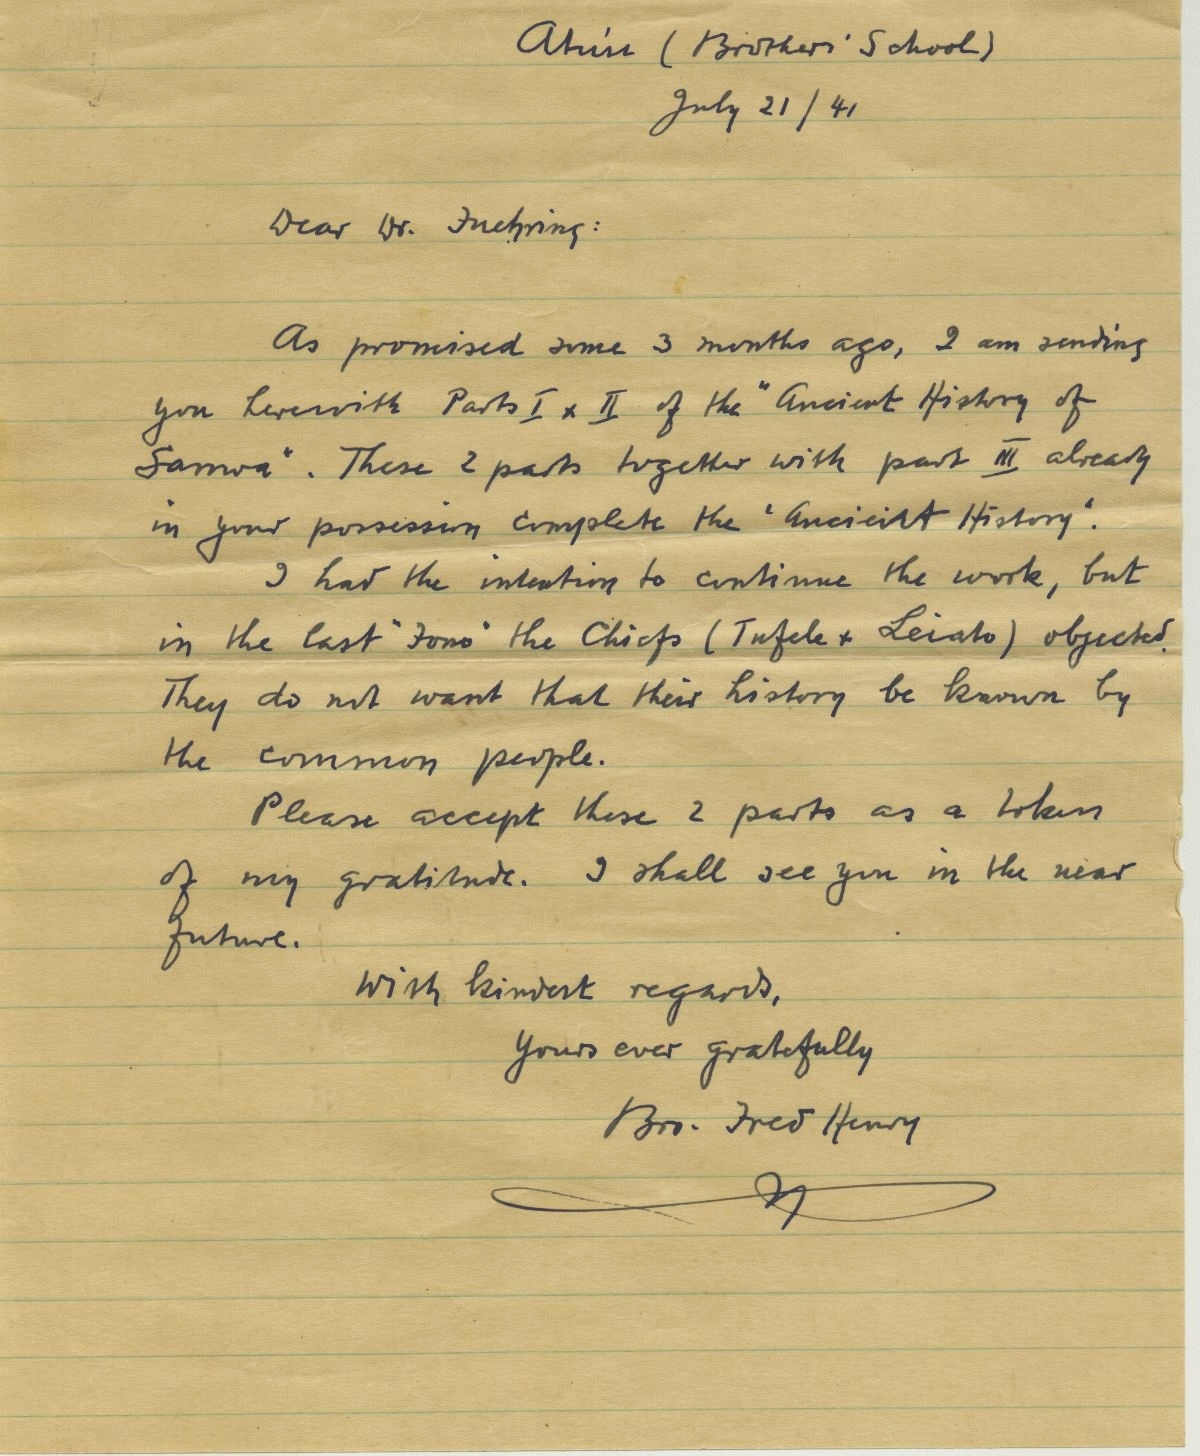 Atu'u (Brothers' School)
July 21/41
Dear Dr. Fuehring:
As promised some 3 months ago, I am sending
you herewith Parts I & II of the "Ancient History of
Samoa". These 2 parts together with part III already
in your possession complete the "Ancient History".
I had the intention to continue the work, but
in the last "Fono" the Chiefs (Tufele & Leiato) objected.
They do not want that their history be known by
the common people.
Please accept these 2 parts as a token
of my gratitude. I shall see you in the near
future.
With kindest regards,
Yours ever gratefully
Bro. Fred Henry